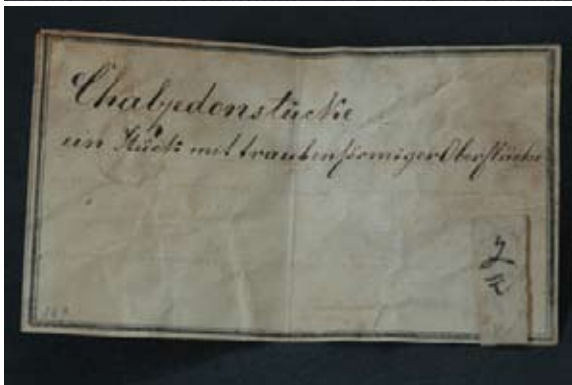 Chalzedonstücke
ein Stück mit traubenförmiger Oberfläche
2